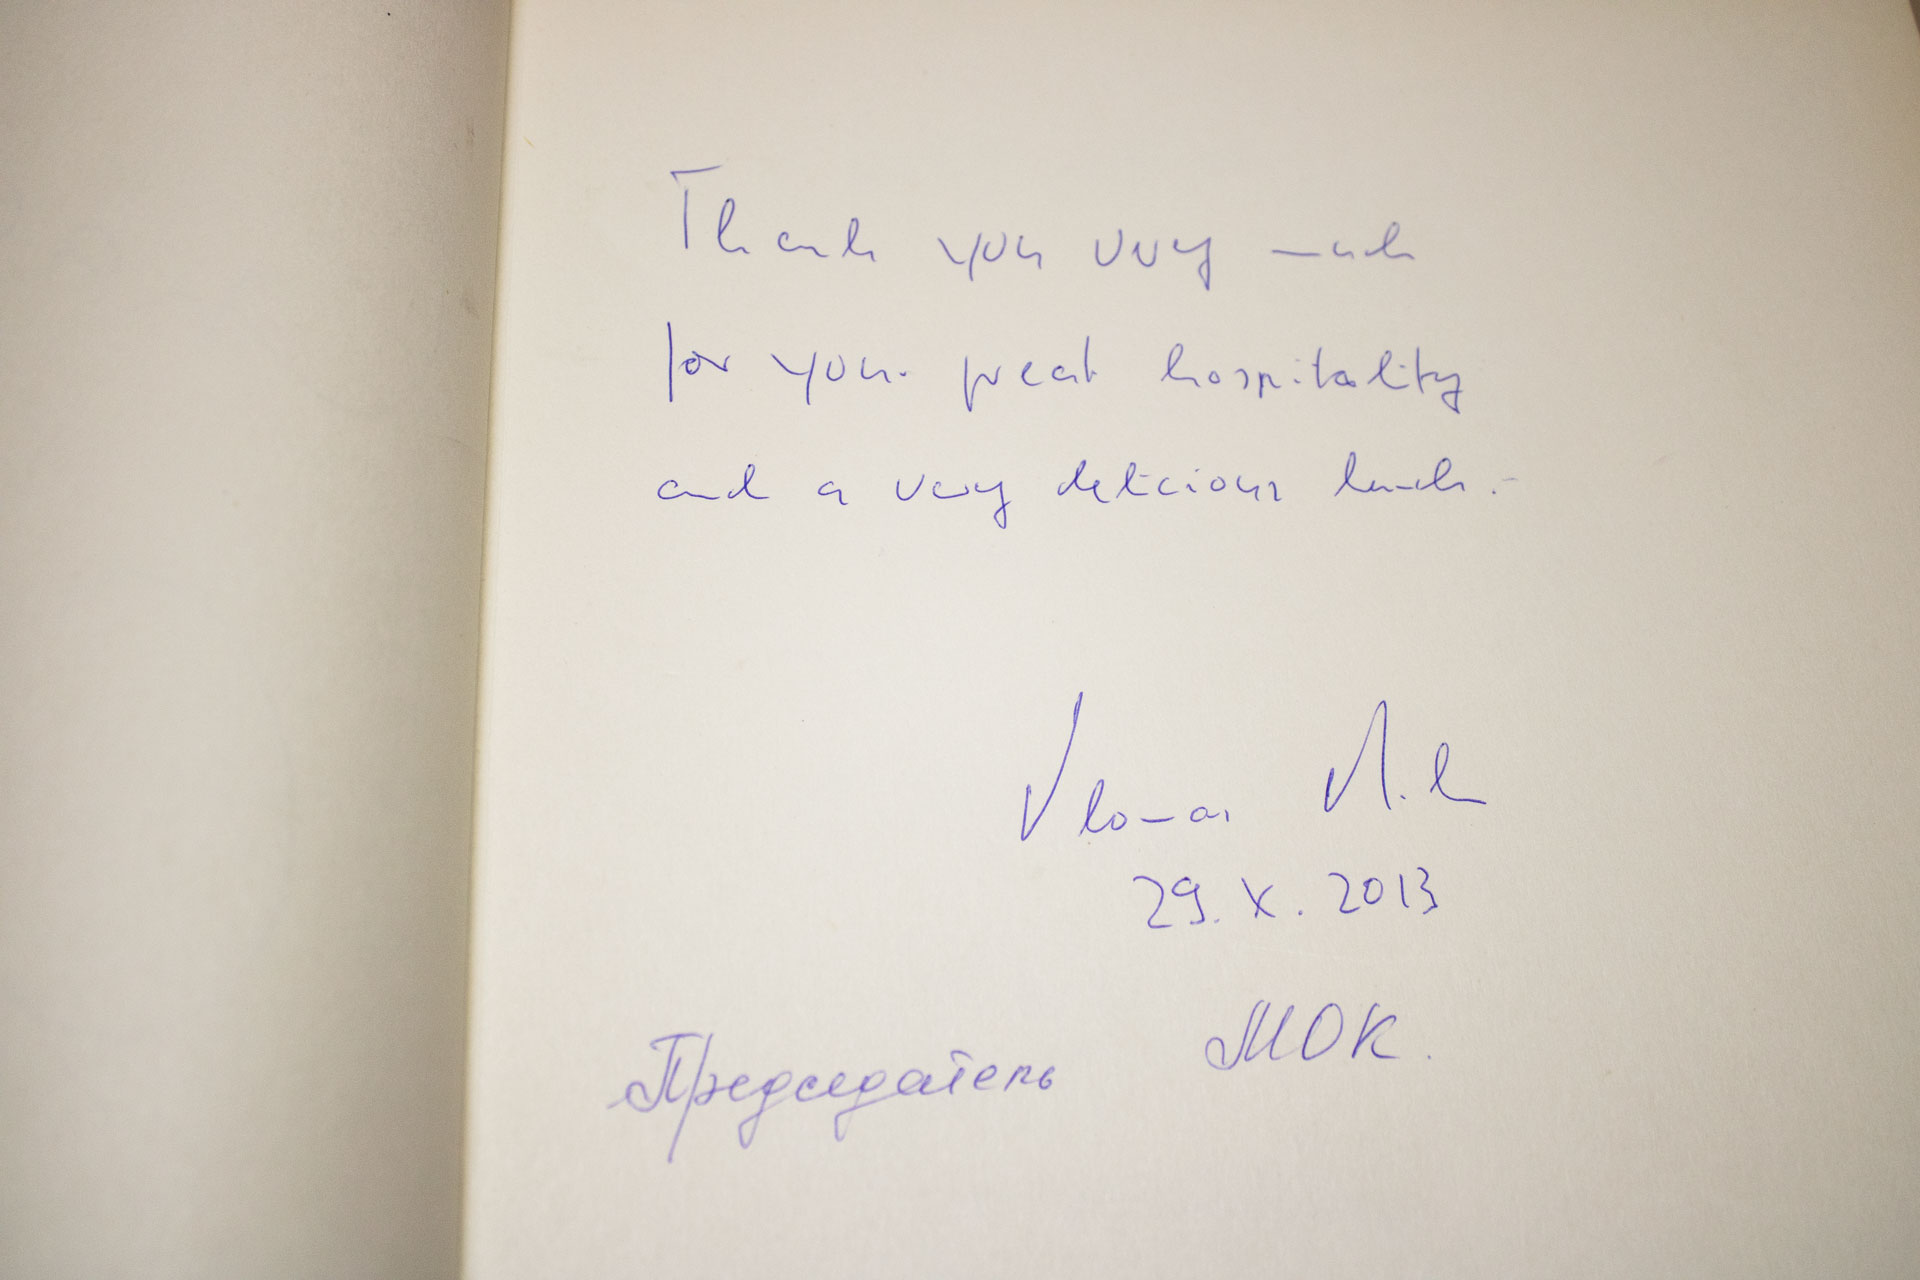 Thank you very much
for your great hospitality
and a very delicious lunch.
Thomas
29. X. 2013
Председатель МОК.